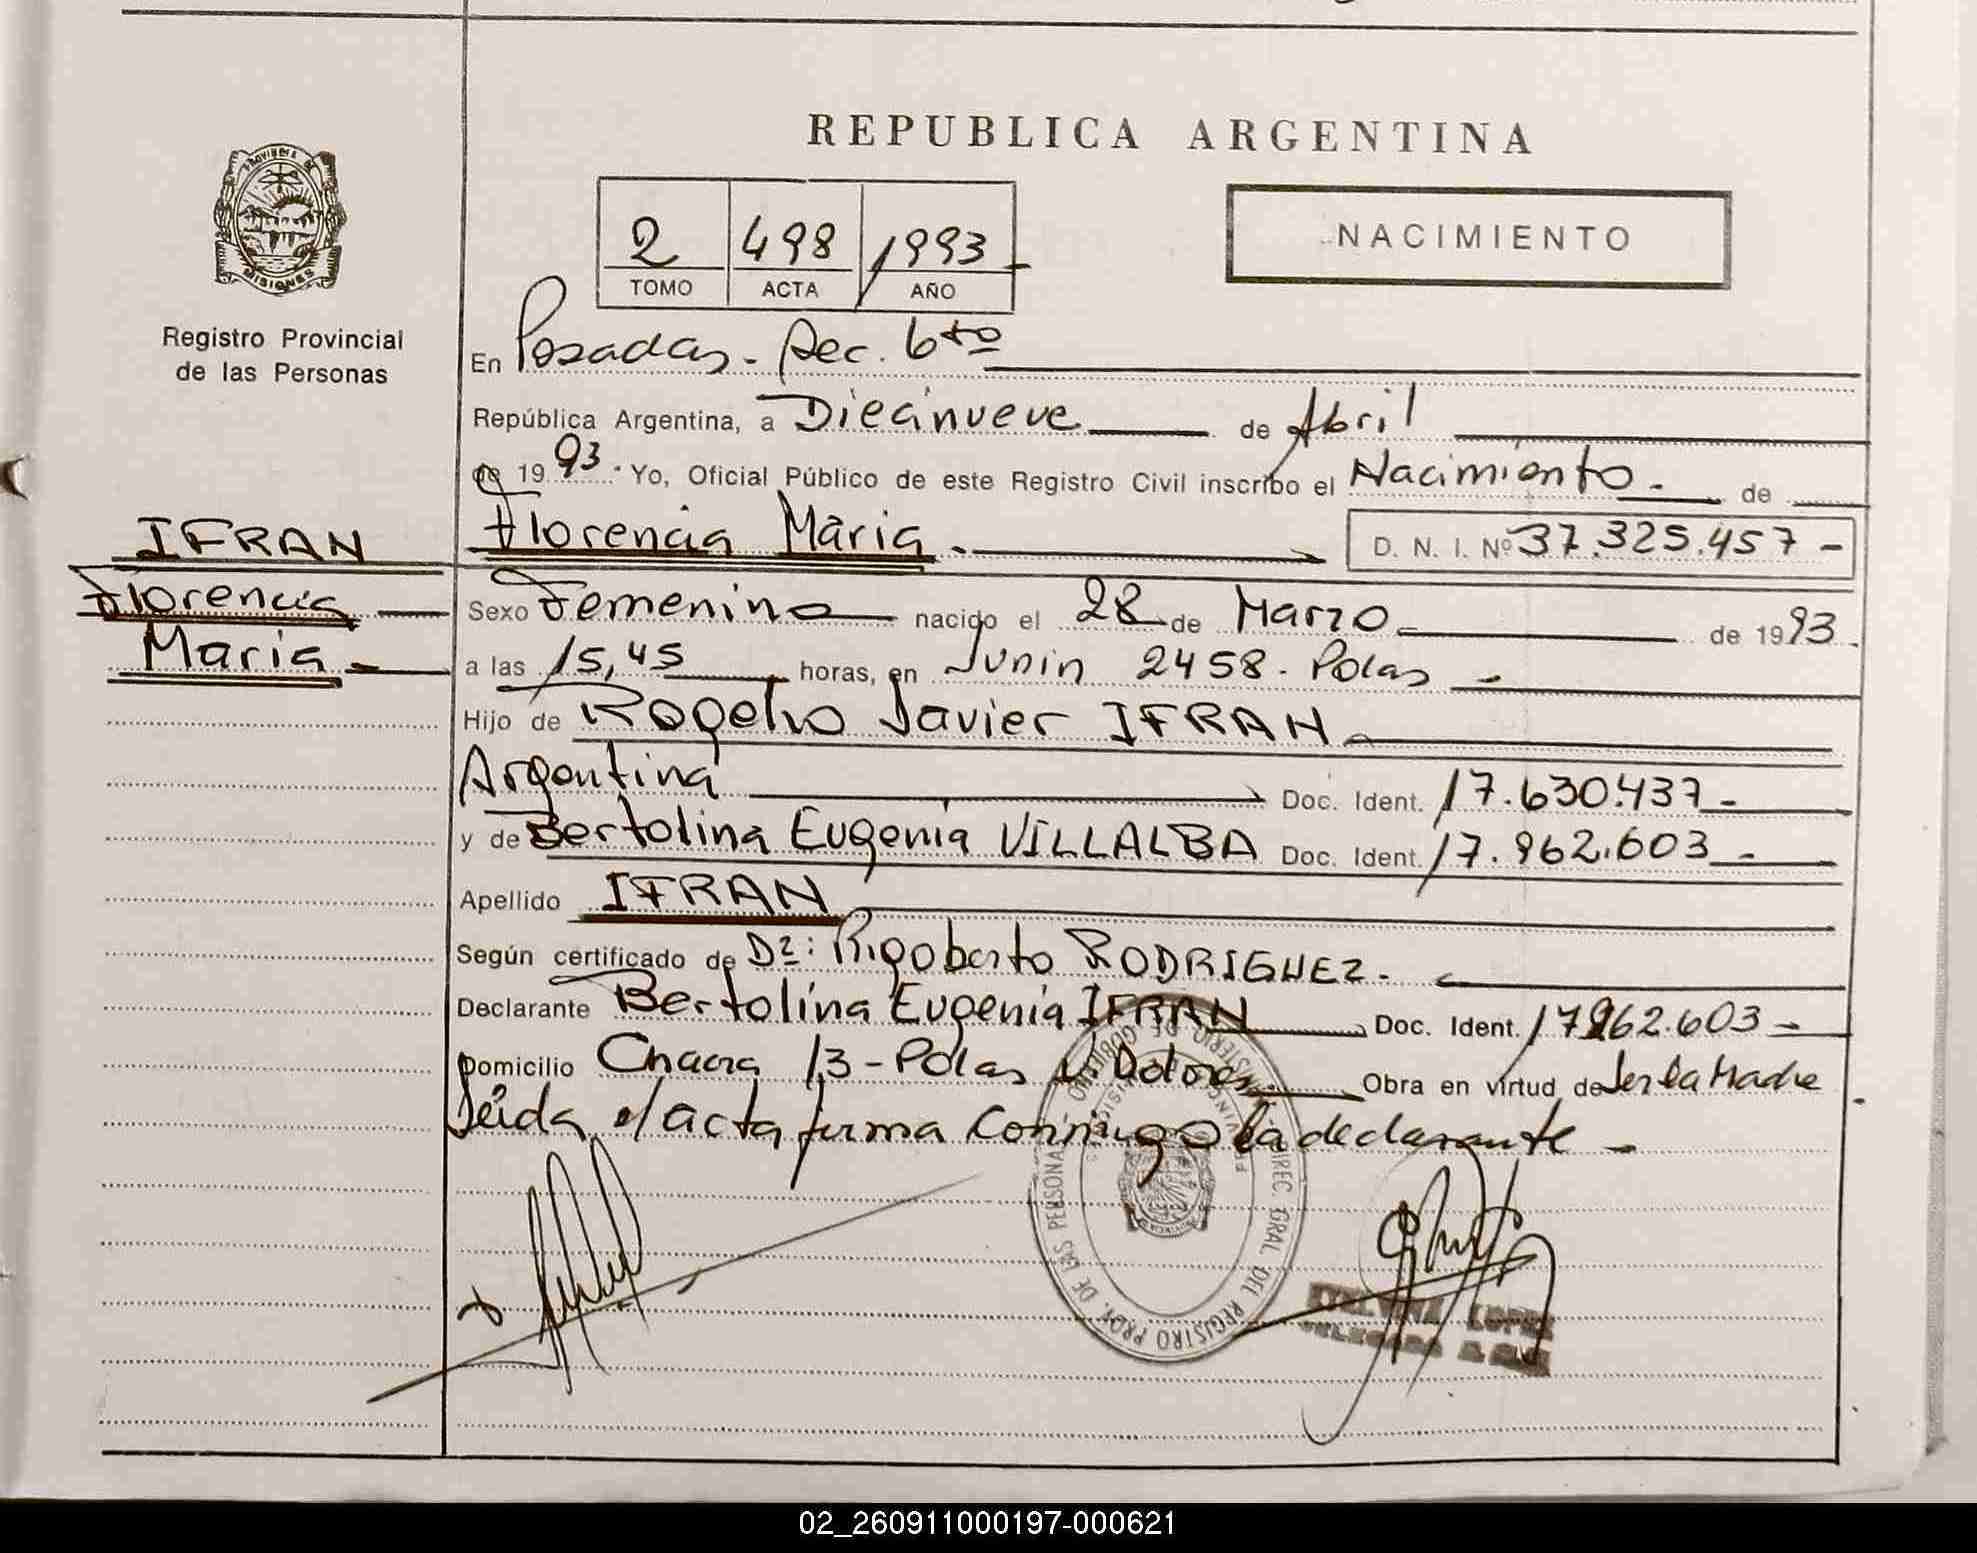 REPUBLICA ARGENTINA
PROVINCIA DE
MISIONES
Registro Provincial
de las Personas
2 498 1993
TOMO ACTA AÑO
NACIMIENTO
En Posadas - Sec. 6to
República Argentina, a Diecinueve de Abril
de 1993. Yo, Oficial Público de este Registro Civil inscribo el Nacimiento. de
Florencia Maria. D. N. I. Nº 37.325.457 -
IFRAN
Florencia
Maria -
Sexo Femenino nacido el 28 de Marzo de 1993.
a las 15,45 horas, en Junin 2458. Pdas -
Hijo de Rogelio Javier IFRAN
Argentina Doc. Ident. 17.630.437 -
y de Bertolina Eugenia VILLALBA Doc. Ident. 17.962.603 -
Apellido IFRAN
Según certificado de Dr: Rigoberto RODRIGUEZ.
Declarante Bertolina Eugenia IFRAN Doc. Ident. 17962.603 -
Domicilio Chacra 13 - Pdas V. Dolores. Obra en virtud de Ser la Madre
Leida e/acta firma conmigo la declarante -
DIREC. GRAL. DEL REGISTRO PROV. DE LAS PERSONAS
LOPEZ
02_260911000197-000621